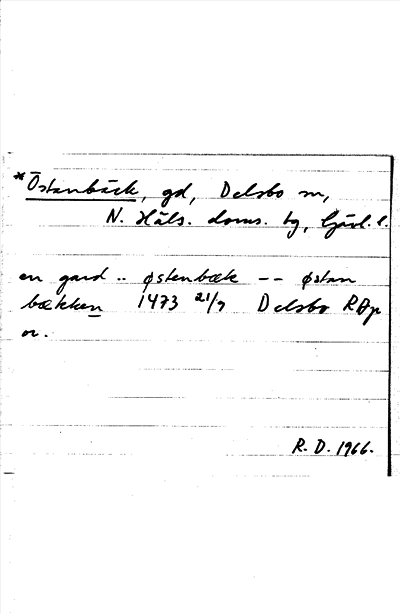 *Östanbäck, gd, Delsbo sn,
N. Häls. doms. tg, Gävl. l.
en gard .. østenbæk -- østan
bækken 1473 21/7 Delsbo RAp
or.
R. D. 1966.